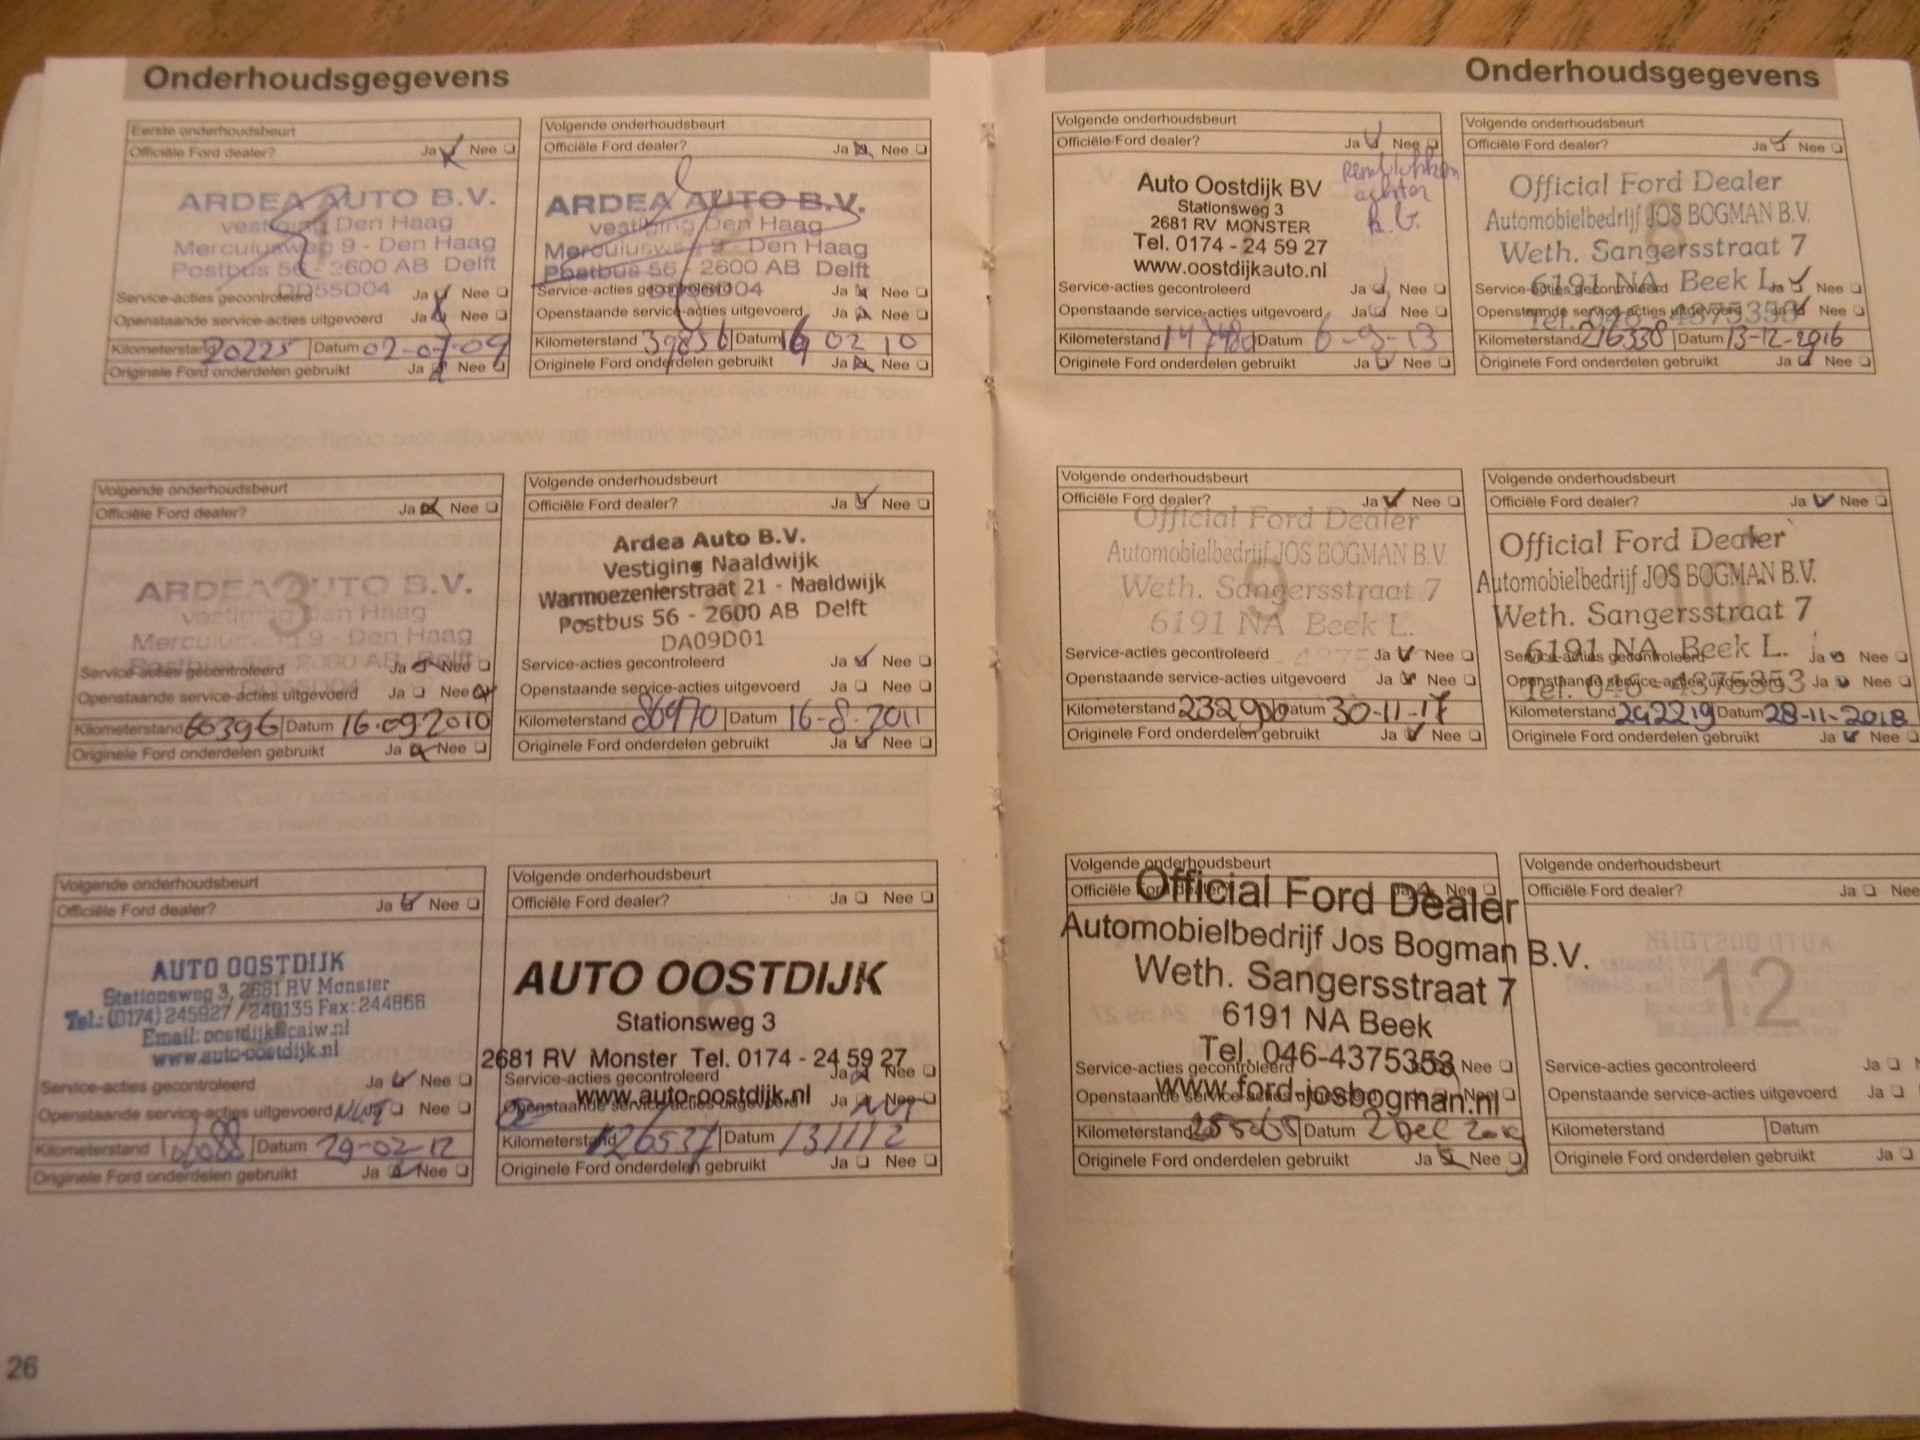 Onderhoudsgegevens
Eerste onderhoudsbeurt
Officiële Ford dealer? Ja Nee
ARDEA AUTO B.V.
vestiging Den Haag
Mercuriusweg 9 - Den Haag
Postbus 56 - 2600 AB Delft
DD55D04
Service-acties gecontroleerd Ja Nee
Openstaande service-acties uitgevoerd Ja Nee
Kilometerstand 20225 Datum 02-07-09
Originele Ford onderdelen gebruikt Ja Nee
Volgende onderhoudsbeurt
Officiële Ford dealer? Ja Nee
ARDEA AUTO B.V.
vestiging Den Haag
Mercuriusweg 9 - Den Haag
Postbus 56 - 2600 AB Delft
DD55D04
Service-acties gecontroleerd Ja Nee
Openstaande service-acties uitgevoerd Ja Nee
Kilometerstand 39836 Datum 16 02 10
Originele Ford onderdelen gebruikt Ja Nee
Volgende onderhoudsbeurt
Officiële Ford dealer? Ja Nee
3
ARDEA AUTO B.V.
vestiging Den Haag
Mercuriusweg 9 - Den Haag
Postbus 56 - 2600 AB Delft
DD55D04
Service-acties gecontroleerd Ja Nee
Openstaande service-acties uitgevoerd Ja Nee
Kilometerstand 60396 Datum 16-09-2010
Originele Ford onderdelen gebruikt Ja Nee
Volgende onderhoudsbeurt
Officiële Ford dealer? Ja Nee
Ardea Auto B.V.
Vestiging Naaldwijk
Warmoezenierstraat 21 - Naaldwijk
Postbus 56 - 2600 AB Delft
DA09D01
Service-acties gecontroleerd Ja Nee
Openstaande service-acties uitgevoerd Ja Nee
Kilometerstand 86970 Datum 16-8-2011
Originele Ford onderdelen gebruikt Ja Nee
Volgende onderhoudsbeurt
Officiële Ford dealer? Ja Nee
AUTO OOSTDIJK
Stationsweg 3, 2681 RV Monster
Tel.: (0174) 245927 / 240135 Fax: 244866
Email: oostdijk@caiw.nl
www.auto-oostdijk.nl
Service-acties gecontroleerd Ja Nee
Openstaande service-acties uitgevoerd NVT Nee
Kilometerstand Datum 29-02-12
Originele Ford onderdelen gebruikt Ja Nee
Volgende onderhoudsbeurt
Officiële Ford dealer? Ja Nee
AUTO OOSTDIJK
Stationsweg 3
2681 RV Monster Tel. 0174 - 24 59 27
www.auto-oostdijk.nl
Service-acties gecontroleerd Ja Nee
Openstaande service-acties uitgevoerd Ja Nee NVT
Kilometerstand 126537 Datum 131112
Originele Ford onderdelen gebruikt Ja Nee
26
Onderhoudsgegevens
Volgende onderhoudsbeurt
Officiële Ford dealer? Ja Nee
Remblokken
achter
Auto Oostdijk BV
Stationsweg 3
2681 RV MONSTER
Tel. 0174 - 24 59 27
www.oostdijkauto.nl
Service-acties gecontroleerd Ja Nee
Openstaande service-acties uitgevoerd Ja Nee
Kilometerstand Datum 6-9-13
Originele Ford onderdelen gebruikt Ja Nee
Volgende onderhoudsbeurt
Officiële Ford dealer? Ja Nee
8
Official Ford Dealer
Automobielbedrijf JOS BOGMAN B.V.
Weth. Sangersstraat 7
6191 NA Beek L.
Tel. 046 - 4375353
Service-acties gecontroleerd Ja Nee
Openstaande service-acties uitgevoerd Ja Nee
Kilometerstand 216338 Datum 13-12-2016
Originele Ford onderdelen gebruikt Ja Nee
Volgende onderhoudsbeurt
Officiële Ford dealer? Ja Nee
9
Official Ford Dealer
Automobielbedrijf JOS BOGMAN B.V.
Weth. Sangersstraat 7
6191 NA Beek L.
Service-acties gecontroleerd Ja Nee
Openstaande service-acties uitgevoerd Ja Nee
Kilometerstand Datum 30-11-17
Originele Ford onderdelen gebruikt Ja Nee
Volgende onderhoudsbeurt
Officiële Ford dealer? Ja Nee
10
Official Ford Dealer
Automobielbedrijf JOS BOGMAN B.V.
Weth. Sangersstraat 7
6191 NA Beek L.
Tel. 046 - 4375353
Service-acties gecontroleerd Ja Nee
Openstaande service-acties uitgevoerd Ja Nee
Kilometerstand 242219 Datum 28-11-2018
Originele Ford onderdelen gebruikt Ja Nee
Volgende onderhoudsbeurt
Officiële Ford dealer? Ja Nee
Official Ford Dealer
Automobielbedrijf Jos Bogman B.V.
Weth. Sangersstraat 7
6191 NA Beek
Tel. 046-4375353
www.ford-josbogman.nl
Service-acties gecontroleerd Nee
Openstaande service-acties uitgevoerd Nee
Kilometerstand Datum 2 Dec
Originele Ford onderdelen gebruikt Ja Nee
Volgende onderhoudsbeurt
Officiële Ford dealer? Ja Nee
12
Service-acties gecontroleerd Ja
Openstaande service-acties uitgevoerd Ja
Kilometerstand Datum
Originele Ford onderdelen gebruikt Ja